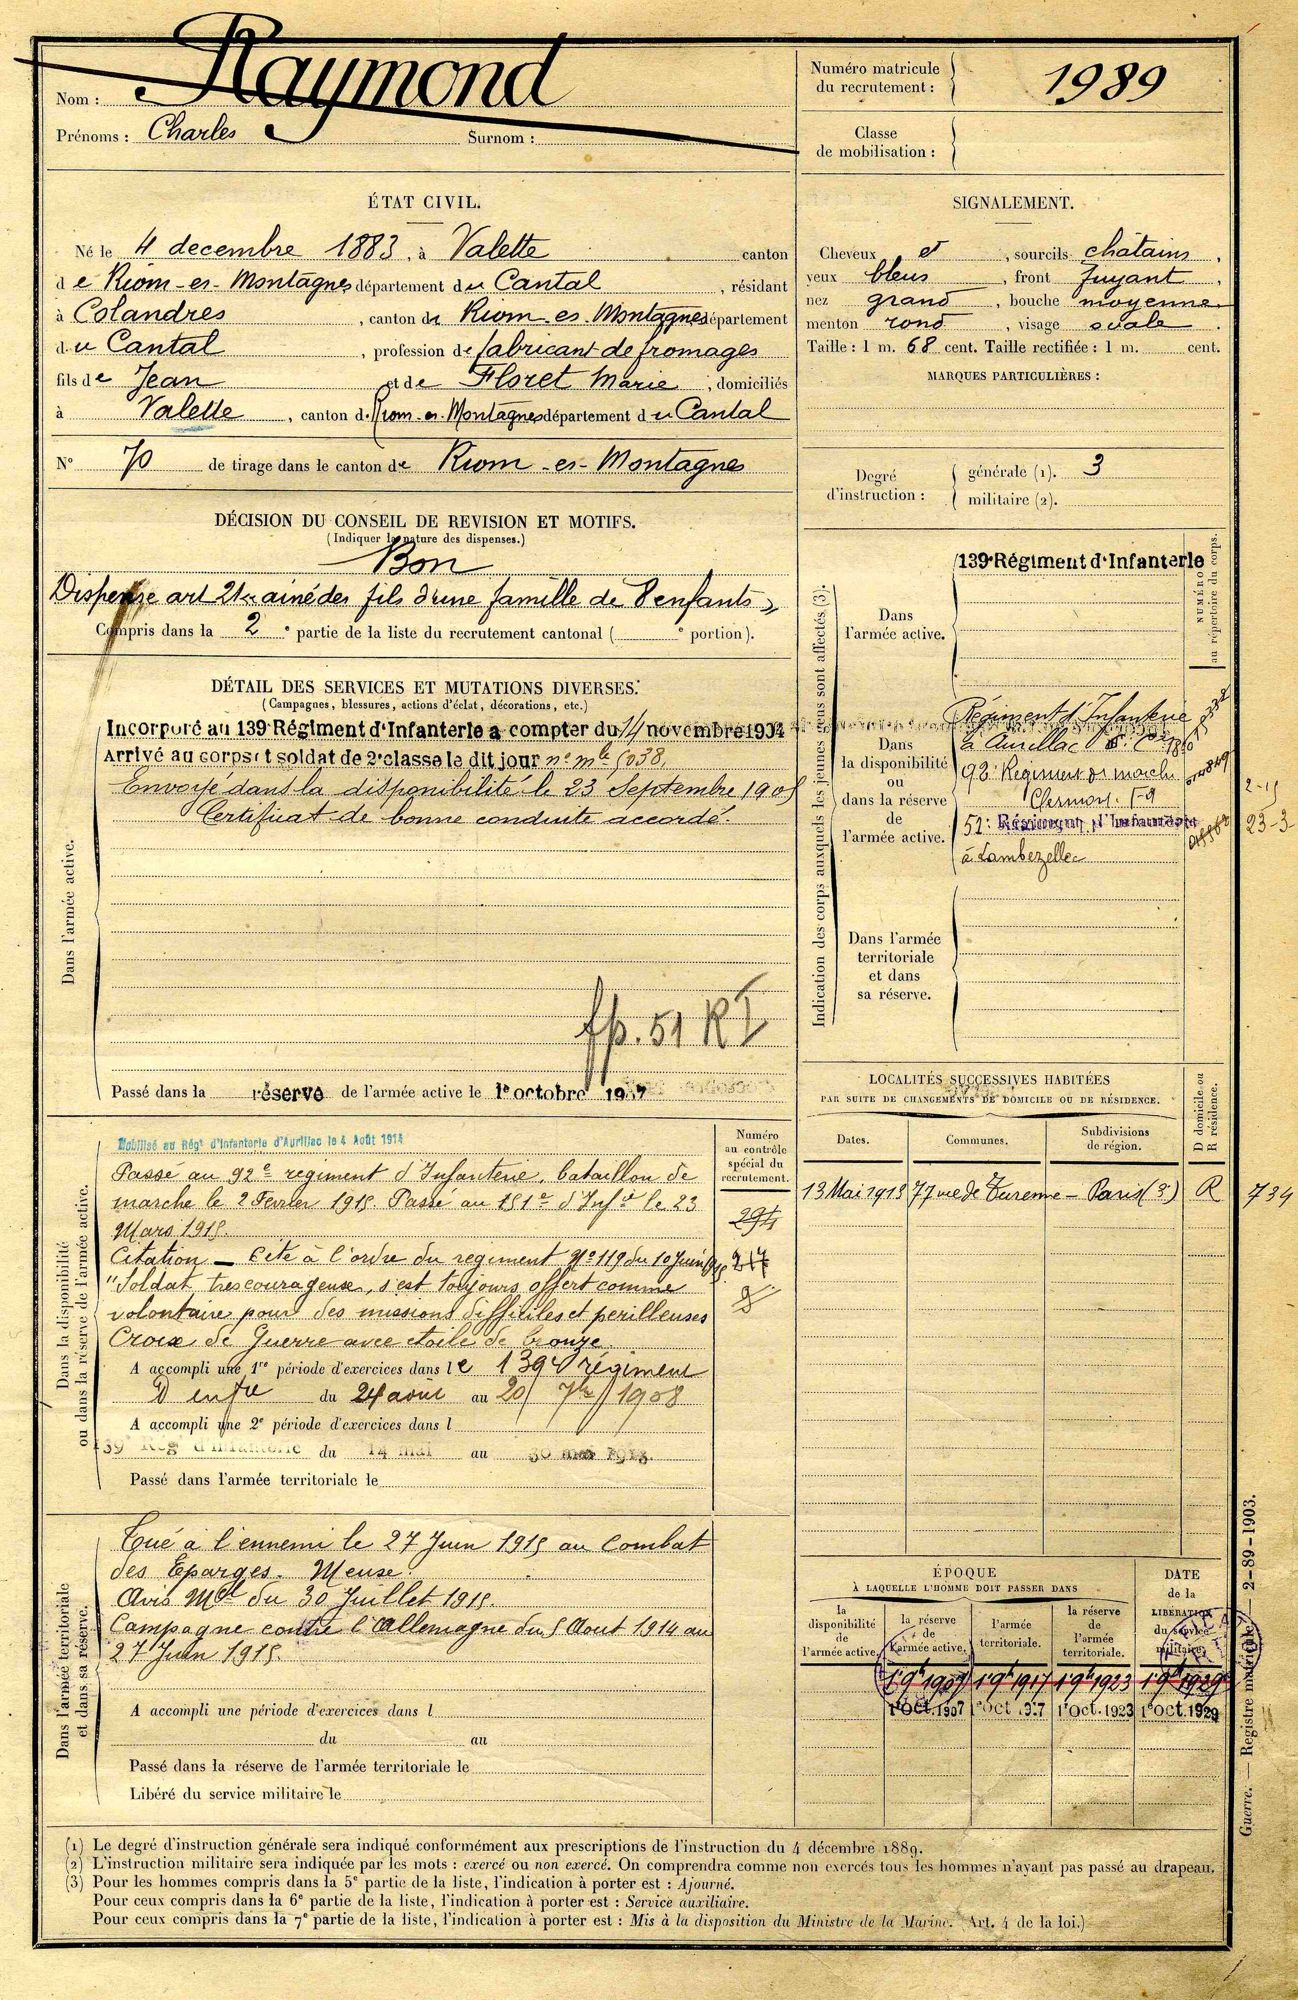 Nom : Raymond
Prénoms : Charles Surnom :
Numéro matricule du recrutement : 1989
Classe de mobilisation :
ÉTAT CIVIL.
Né le 4 decembre 1883, à Valette canton
de Riom-es-Montagnes département du Cantal, résidant
à Colandres, canton de Riom-es-Montagnes département
du Cantal, profession de fabricant de fromages
fils de Jean et de Floret Marie, domiciliés
à Valette, canton d. Riom-es-Montagnes département du Cantal
N° 70 de tirage dans le canton de Riom-es-Montagnes
SIGNALEMENT.
Cheveux et, sourcils châtains,
yeux bleus, front fuyant,
nez grand, bouche moyenne,
menton rond, visage ovale.
Taille : 1 m. 68 cent. Taille rectifiée : 1 m. cent.
MARQUES PARTICULIÈRES :
Degré d'instruction :
générale (1). 3
militaire (2).
DÉCISION DU CONSEIL DE REVISION ET MOTIFS.
(Indiquer la nature des dispenses.)
Bon
Dispense art 21 ainé des fils d'une famille de 8 enfants
Compris dans la 2e partie de la liste du recrutement cantonal ( e portion).
DÉTAIL DES SERVICES ET MUTATIONS DIVERSES.
(Campagnes, blessures, actions d'éclat, décorations, etc.)
Dans l'armée active.
Incorporé au 139e Régiment d'Infanterie a compter du 14 novembre 1904
Arrivé au corps et soldat de 2e classe le dit jour n° mle 5038.
Envoyé dans la disponibilité le 23 Septembre 1905
Certificat de bonne conduite accordé.
fp. 51 RI
Passé dans la réserve de l'armée active le 1er octobre 1907
Indication des corps auxquels les jeunes gens sont affectés (3).
NUMÉRO au répertoire du corps.
Dans l'armée active.
139e Régiment d'Infanterie
Dans la disponibilité ou dans la réserve de l'armée active.
Régiment d'Infanterie
à Aurillac
92e Régiment de marche
Clermont-Fd
2-15
51e Régiment d'Infanterie
23-3
à Lambezellec
Dans l'armée territoriale et dans sa réserve.
LOCALITÉS SUCCESSIVES HABITÉES
PAR SUITE DE CHANGEMENTS DE DOMICILE OU DE RÉSIDENCE.
Dates. Communes. Subdivisions de région. D domicile ou R résidence.
13 Mai 1913 77 rue de Turenne - Paris (3e) R 734
Dans la disponibilité ou dans la réserve de l'armée active.
Numéro au contrôle spécial du recrutement.
294
217
Mobilisé au Régt d'Infanterie d'Aurillac le 4 Août 1914
Passé au 92e regiment d'Infanterie, bataillon de
marche le 2 Fevrier 1915. Passé au 151e d'Infie le 23
Mars 1915.
Citation - Cité à l'ordre du regiment N° 119 du 10 Juin 1915
"Soldat très courageuse, s'est toujours offert comme
volontaire pour des missions difficiles et perilleuses
Croix de Guerre avec etoile de bronze.
A accompli une 1re période d'exercices dans le 139e régiment
D'infie du 24 août au 20 7bre 1908
A accompli une 2e période d'exercices dans l
139e Rég d'Infanterie du 14 mai au 30 mai 1913.
Passé dans l'armée territoriale le
Dans l'armée territoriale et dans sa réserve.
Tué à l'ennemi le 27 Juin 1915 au Combat
des Eparges. Meuse.
Avis Mel du 30 Juillet 1915.
Campagne contre l'Allemagne du 5 Aout 1914 au
27 Juin 1915.
A accompli une période d'exercices dans l
du au
Passé dans la réserve de l'armée territoriale le
Libéré du service militaire le
ÉPOQUE
À LAQUELLE L'HOMME DOIT PASSER DANS
la disponibilité de l'armée active.
la réserve de l'armée active.
l'armée territoriale.
la réserve de l'armée territoriale.
DATE de la LIBÉRATION du service militaire.
1er 9bre 1907 1er 9bre 1917 1er 9bre 1923 1er 9bre 1929
1er oct. 1907 1er oct 1917 1er oct. 1923 1er oct. 1929
Guerre. — Registre matricule. — 2-89-1903.
(1) Le degré d'instruction générale sera indiqué conformément aux prescriptions de l'instruction du 4 décembre 1889.
(2) L'instruction militaire sera indiquée par les mots : exercé ou non exercé. On comprendra comme non exercés tous les hommes n'ayant pas passé au drapeau.
(3) Pour les hommes compris dans la 5e partie de la liste, l'indication à porter est : Ajourné.
Pour ceux compris dans la 6e partie de la liste, l'indication à porter est : Service auxiliaire.
Pour ceux compris dans la 7e partie de la liste, l'indication à porter est : Mis à la disposition du Ministre de la Marine. (Art. 4 de la loi.)